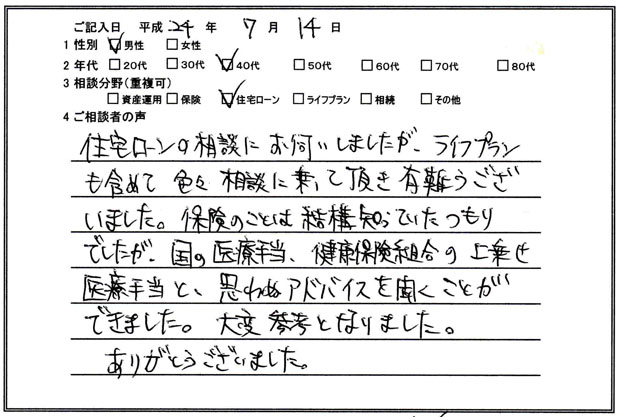 ご記入日 平成 24 年 7 月 14 日
1 性別 ☑男性 □女性
2 年代 □20代 □30代 ☑40代 □50代 □60代 □70代 □80代
3 相談分野(重複可)
□資産運用 □保険 ☑住宅ローン □ライフプラン □相続 □その他
4 ご相談者の声
住宅ローンの相談にお伺いしましたが、ライフプラン
も含めて色々相談に乗って頂き有難うござ
いました。保険のことは結構知っていたつもり
でしたが、国の医療手当、健康保険組合の上乗せ
医療手当と、思わぬアドバイスを聞くことが
できました。大変参考となりました。
ありがとうございました。